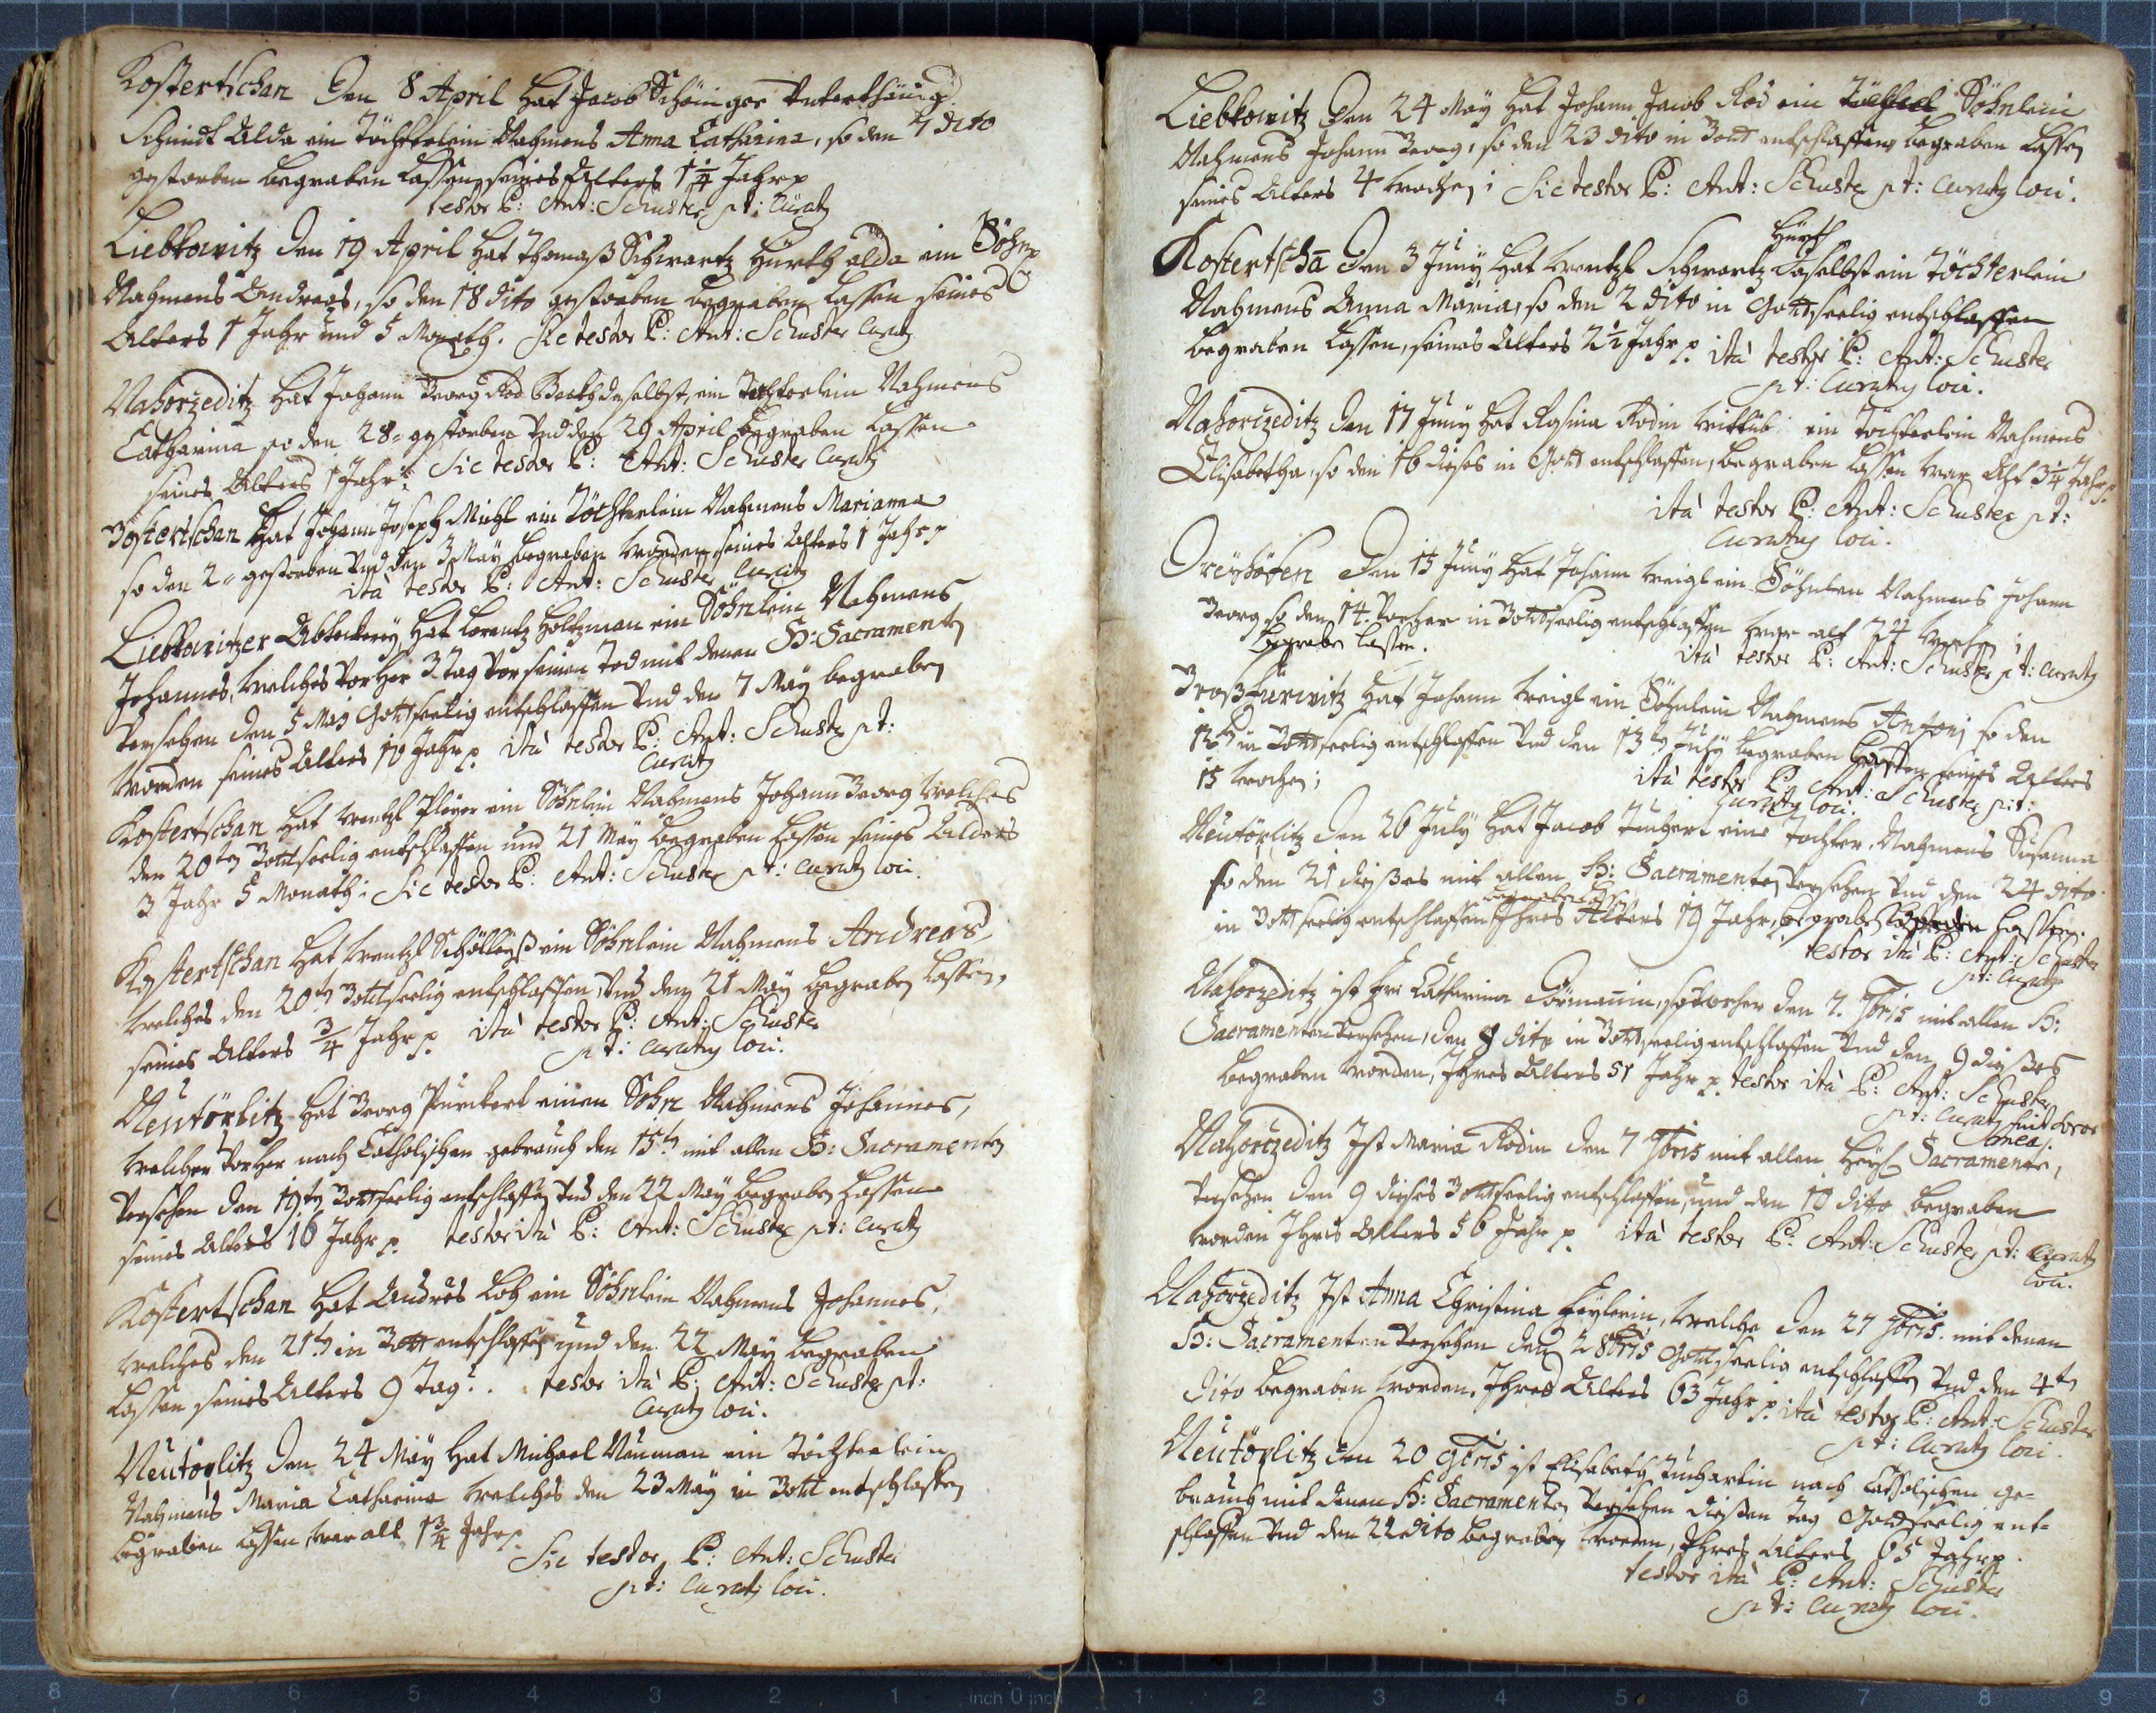 Kostertschan Den 8 April hat Jacob Schöninger Unterthänig
Schmidt Alda ein Töchterlein Nahmens Anna Catharina, so den 7 dito
gestorben begraben lassen, seines Alters 1 1/4 Jahr p
testor P: Ant: Schuster pt: Curatg
Liebkowitz den 19 April hat Thomaß Schwartz Hürth alda ein Söhn
Nahmens Andreas, so den 18 dito gestorben begraben lassen seines
Alters 1 Jahr und 5 Monath. Sic testor P: Ant: Schuster Curatg
Nahorzeditz hat Johann Georg Rod daselbst, ein Tochterlein Nahmens
Catharina so den 28 gestorben Und den 29 April begraben lassen
seines Alters 1 Jahr. Sic testor P: Ant: Schuster Curatg
Kostertschan Hat Johann Joseph Michl ein Töchterlein Nahmens Marianna
so den 2 gestorben Und den 3 May begraben worden seines Alters 1 Jahr p
ità testor P: Ant: Schuster Curatg
Liebkowitzer hat Lorentz Holtzman ein Söhnlein Nahmens
Johannes, welches Vorher 3 tag Vor seinem Tod mit denen H: Sacramentg
Versehen den 5 May Gottseelig entschlaffen Und den 7 May begraben
Worden seines Alters 10 Jahr p ità testor P: Ant: Schuster pt:
Curatg
Kostertschan hat Wentzl Pleyer ein Söhnlein Nahmens Johann Georg welches
den 20ten Gottseelig entschlaffen und 21 May begraben lassen seines Alders
3 Jahr 5 Monath: Sic testor P: Ant: Schuster pt: Curatg loci.
Kostertschan hat Wentzl ein Söhnlein Nahmens Andreas,
welches den 20ten Gottseelig entschlaffen, Und den 21 May begraben lassen,
seines Alters 3/4 Jahr p ità testor P: Ant: Schuster
pt: Curatg loci.
Neutörlitz hat Georg Purckert einen Sohn Nahmens Johannes,
welcher Vorher nach Catholischen gebrauch den 15ten mit allen H: Sacramentg
Versehen den 19ten Gottseelig entschlaffen Und den 22 May begraben lassen
seines Alters 16 Jahr p testor ità P: Ant: Schuster pt: Curatg
Kostertschan hat Andres Lob ein Söhnlein Nahmens Johannes,
welches den 21ten in Gott entschlaffen und den 22 May begraben
lassen seines Alters 9 tag. testor ità P: Ant: Schuster pt:
Curatg loci.
Neutöplitz den 24 May hat Michael Neuman ein Töchterlein
Nahmens Maria Catharina welches den 23 May in Gott entschlaffen
begraben lassen, war alt 1 3/4 Jahr p
Sic testor P: Ant: Schuster
pt: Curatg loci.
Liebkowitz Den 24 May hat Johann Jacob Rod ein Söhnlein
Nahmens Johann Georg, so den 23 dito in Gott entschlaffen, begraben lassen
seines Alters 4 wochen; Sic testor P: Ant: Schuster pt: Curatg loci.
Hürth
Kostertscha Den 3 Juny hat Wentzl Schwartz daselbst ein Töchterlein
Nahmens Anna Maria, so den 2 dito in Gottseelig entschlaffen
begraben lassen, seines Alters 2 1/2 Jahr p ità testor P: Ant: Schuster
pt: Curatg loci.
Nahorczeditz den 17 Juny hat Rosina Rodin Wittib ein Töchterlein Nahmens
Elisabetha, so den 16 dieses in Gott entschlaffen, begraben lassen war Alt 3 1/4 Jahr p
ità testor P: Ant: Schuster pt:
Curatg loci.
Dreyhöfen Den 15 Juny hat Johann Weigl ein Söhnlen Nahmens Johann
Georg so den 14 Vorher in Gottseelig entschlaffen war alt 24 wochen;
begraben lassen. ità testor P: Ant: Schuster pt: Curatg
Großfürwitz hat Johann Weigl ein Söhnlein Nahmens Antonj so den
12ten in Gottseelig entschlaffen Und den 13ten July begraben lassen seines Alters
15 wochen; ità testor P: Ant: Schuster pt:
Curatg loci.
Neutöplitz den 26 July hat Jacob eine Tochter, Nahmens Susanna
so den 21 dießes mit allen H: Sacramenten Versehen Und den 24 dito
in Gottseelig entschlaffen Ihres Alters 19 Jahr, begraben lassen.
testor ità P: Ant: Schuster
pt: Curatg
Nahorzeditz ist Fr: Catharina so Vorher den 7. 7bris mit allen H:
Sacramenten Versehen, den 8 dito in Gottseelig entschlaffen Und den 9 dießes
begraben worden, Ihres Alters 51 Jahr p testor ità P: Ant: Schuster
pt: Curatg fuit soror
mea.
Nahorczeditz Ist Maria Rodin den 7 7bris mit allen Heyl: Sacramenti,
Versehen den 9 dieses Gottseelig entschlaffen, und den 10 dito begraben
worden Ihres Alters 56 Jahr p ità testor P: Ant: Schuster pt: Curatg
loci.
Nahorzeditz Ist Anna Christina, welche den 27 7bris mit denen
H: Sacramenten Versehen den 2 8bris Gottseelig entschlaffen Und den 4ten
dito begraben worden. Ihres Alters 63 Jahr p: ità testor P: Ant: Schuster
pt: Curatg loci.
Neutöplitz Den 20 9bris ist Elisabeth nach Catholischen ge-
brauch mit denen H: Sacramenten Versehen dießen tag Gottseelig ent-
schlaffen Und den 22 dito begraben worden, Ihres Alters 65 Jahr p.
testor ità P: Ant: Schuster
pt: Curatg loci.
8 7 6 5 4 3 2 1 inch 0 inch 1 2 3 4 5 6 7 8 9